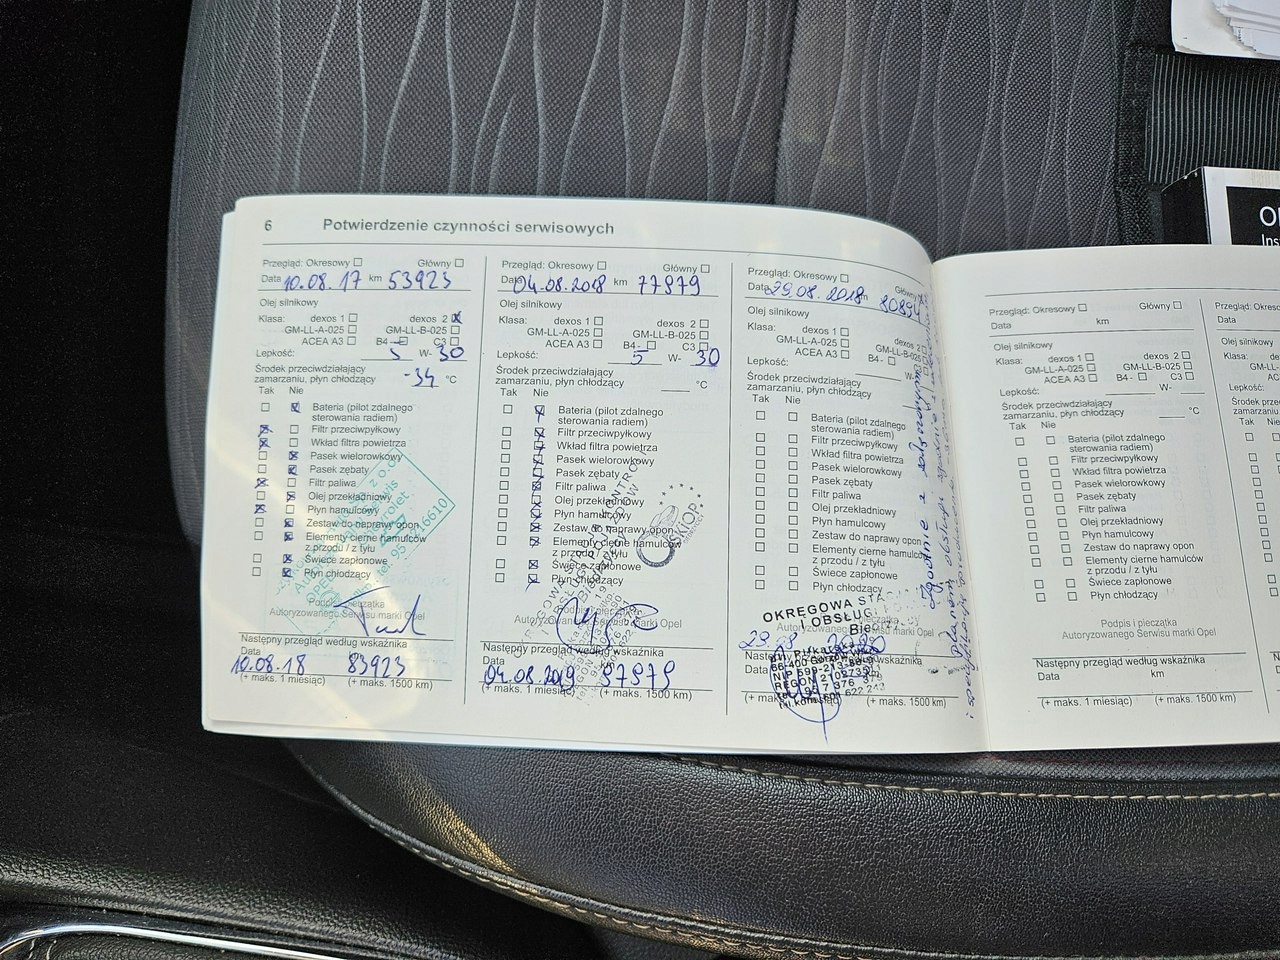 6 Potwierdzenie czynności serwisowych
Przegląd: Okresowy Główny
Data 10.08.17 km 53923
Olej silnikowy
Klasa: dexos 1 dexos 2
GM-LL-A-025 GM-LL-B-025
ACEA A3 B4 - C3
Lepkość: 5 W- 30
Środek przeciwdziałający
zamarzaniu, płyn chłodzący -34 °C
Tak Nie
Bateria (pilot zdalnego
sterowania radiem)
Filtr przeciwpyłkowy
Wkład filtra powietrza
Pasek wielorowkowy
Pasek zębaty
Filtr paliwa
Olej przekładniowy
Płyn hamulcowy
Zestaw do naprawy opon
Elementy cierne hamulców
z przodu / z tyłu
Świece zapłonowe
Płyn chłodzący
Podpis i pieczątka
Autoryzowanego Serwisu marki Opel
Następny przegląd według wskaźnika
Data
10.08.18 83923
(+ maks. 1 miesiąc) (+ maks. 1500 km)
Przegląd: Okresowy Główny
Data 04.08.2018 km 77979
Olej silnikowy
Klasa: dexos 1 dexos 2
GM-LL-A-025 GM-LL-B-025
ACEA A3 B4 - C3
Lepkość: 5 W- 30
Środek przeciwdziałający
zamarzaniu, płyn chłodzący °C
Tak Nie
Bateria (pilot zdalnego
sterowania radiem)
Filtr przeciwpyłkowy
Wkład filtra powietrza
Pasek wielorowkowy
Pasek zębaty
Filtr paliwa
Olej przekładniowy
Płyn hamulcowy
Zestaw do naprawy opon
Elementy cierne hamulców
z przodu / z tyłu
Świece zapłonowe
Płyn chłodzący
SKIOP
Podpis i pieczątka
Autoryzowanego Serwisu marki Opel
Następny przegląd według wskaźnika
Data km
04.08.2019 97979
(+ maks. 1 miesiąc) (+ maks. 1500 km)
Przegląd: Okresowy Główny
Data 29.08.2018 km
Olej silnikowy
Klasa: dexos 1 dexos 2
GM-LL-A-025 GM-LL-B-025
ACEA A3 B4 - C3
Lepkość: W-
Środek przeciwdziałający
zamarzaniu, płyn chłodzący
Tak Nie
Bateria (pilot zdalnego
sterowania radiem)
Filtr przeciwpyłkowy
Wkład filtra powietrza
Pasek wielorowkowy
Pasek zębaty
Filtr paliwa
Olej przekładniowy
Płyn hamulcowy
Zestaw do naprawy opon
Elementy cierne hamulców
z przodu / z tyłu
Świece zapłonowe
Płyn chłodzący
OKRĘGOWA
I OBSŁUGI
Autoryzowanego Serwisu marki Opel
wskaźnika
Data
(+ maks. 1500 km)
Zgodnie z załączonym
planem obsługi
Przegląd: Okresowy Główny
Data km
Olej silnikowy
Klasa: dexos 1 dexos 2
GM-LL-A-025 GM-LL-B-025
ACEA A3 B4 - C3
Lepkość: W-
Środek przeciwdziałający
zamarzaniu, płyn chłodzący °C
Tak Nie
Bateria (pilot zdalnego
sterowania radiem)
Filtr przeciwpyłkowy
Wkład filtra powietrza
Pasek wielorowkowy
Pasek zębaty
Filtr paliwa
Olej przekładniowy
Płyn hamulcowy
Zestaw do naprawy opon
Elementy cierne hamulców
z przodu / z tyłu
Świece zapłonowe
Płyn chłodzący
Podpis i pieczątka
Autoryzowanego Serwisu marki Opel
Następny przegląd według wskaźnika
Data km
(+ maks. 1 miesiąc) (+ maks. 1500 km)